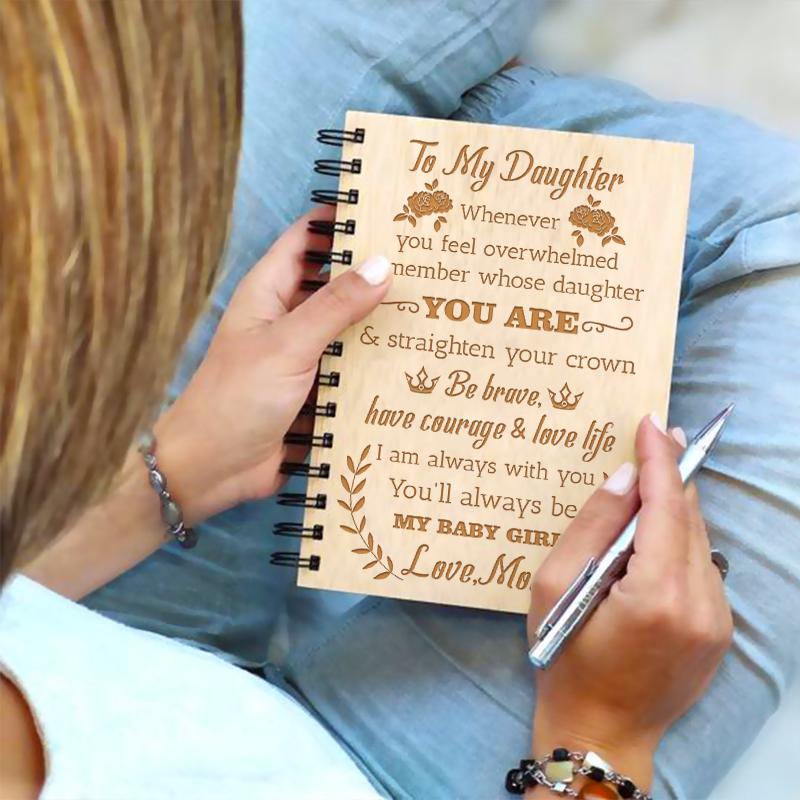 To My Daughter
Whenever
you feel overwhelmed
member whose daughter
YOU ARE
& straighten your crown
Be brave,
have courage & love life
I am always with you
You'll always be
MY BABY GIRL
Love, Mo